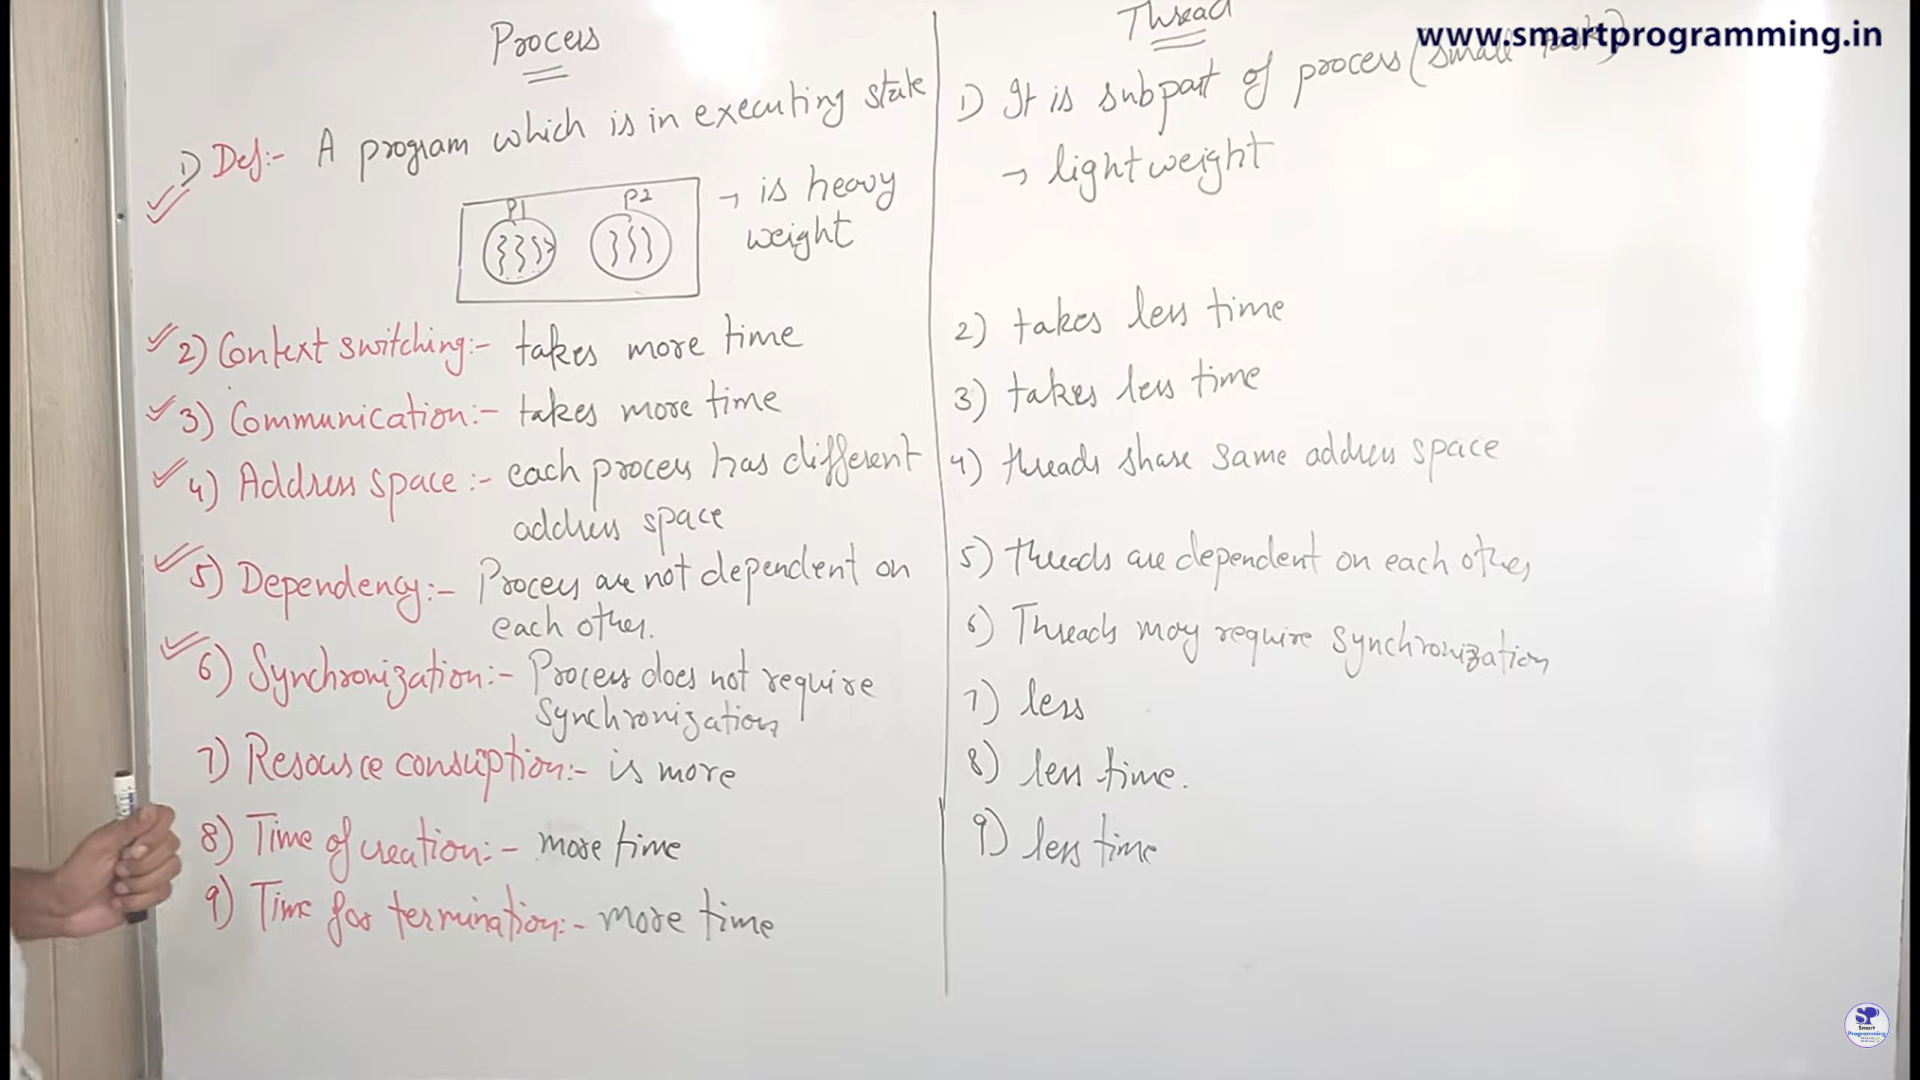 Process
1) Def:- A program which is in executing state
P1
P2
→ is heavy
weight
2) Context switching:- takes more time
3) Communication:- takes more time
4) Address space:- each process has different
address space
5) Dependency:- Process are not dependent on
each other.
6) Synchronization:- Process does not require
Synchronization
7) Resource consuption:- is more
8) Time of creation:- more time
9) Time for termination:- more time
Thread
www.smartprogramming.in
1) It is subpart of process (small task)
→ lightweight
2) takes less time
3) takes less time
4) threads share same address space
5) threads are dependent on each other
6) Threads may require synchronization
7) less
8) less time.
9) less time
SP
Smart
Programming